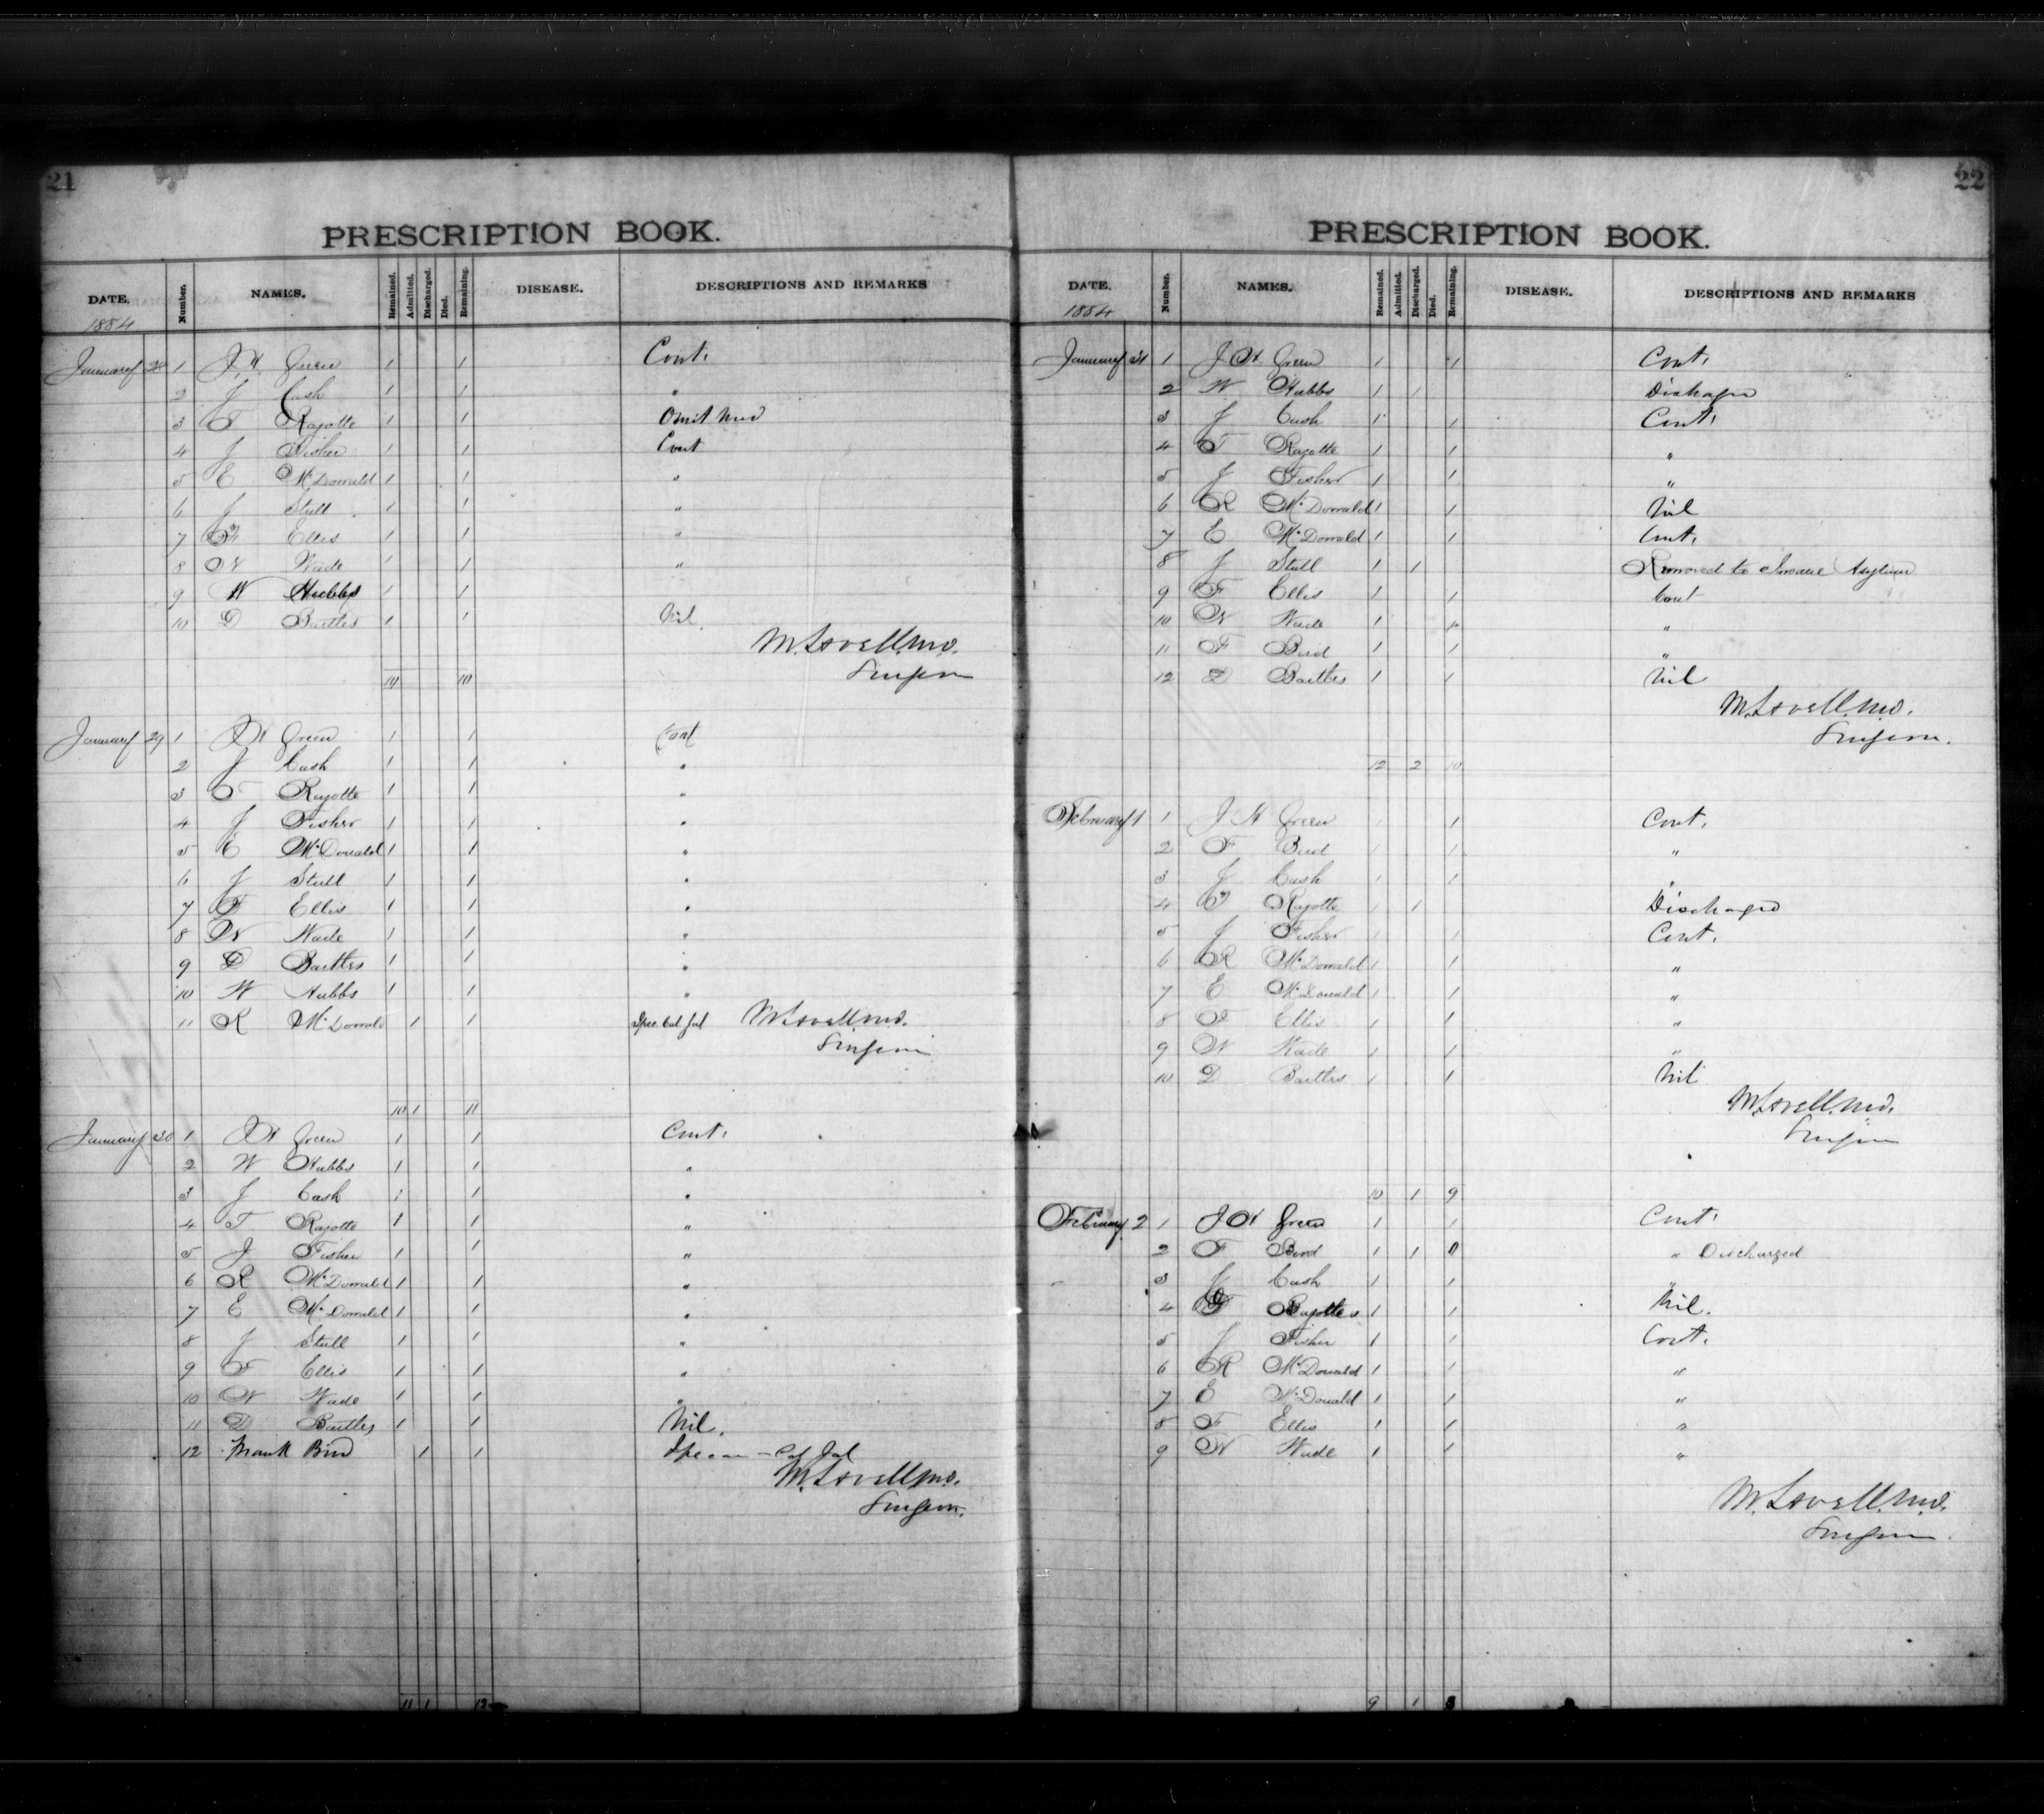 21
PRESCRIPTION BOOK.
DATE. Number. NAMES. Remained. Admitted. Discharged. Died. Remaining. DISEASE. DESCRIPTIONS AND REMARKS
1884
January 28 1 J H Green 1 1 Cont.
2 J Cash 1 1 "
3 T Rajotte 1 1 Omit Med
4 J Fisher 1 1 Cont
5 E McDonald 1 1 "
6 J Stull 1 1 "
7 F Ellis 1 1 "
8 W Wade 1 1 "
9 W Hubbs 1 1
10 D Bartles 1 1 Nil.
M. Lavell. MD.
Surgeon
10 10
January 29 1 J H Green 1 1 Cont
2 J Cash 1 1 "
3 T Rajotte 1 1 "
4 J Fisher 1 1 "
5 E McDonald 1 1 "
6 J Stull 1 1 "
7 F Ellis 1 1 "
8 W Wade 1 1 "
9 D Bartles 1 1 "
10 W Hubbs 1 1 "
11 R McDonald 1 1 Spec Cal Jal M. Lavell MD.
Surgeon
10 1 11
January 30 1 J H Green 1 1 Cont.
2 W Hubbs 1 1 "
3 J Cash 1 1 "
4 T Rajotte 1 1 "
5 J Fisher 1 1 "
6 R McDonald 1 1 "
7 E McDonald 1 1 "
8 J Stull 1 1 "
9 F Ellis 1 1 "
10 W Wade 1 1 "
11 D Bartles 1 1 Nil.
12 Frank Bird 1 1 Cal Jal
M. Lavell MD.
Surgeon.
11 1 12
22
PRESCRIPTION BOOK.
DATE. Number. NAMES. Remained. Admitted. Discharged. Died. Remaining. DISEASE. DESCRIPTIONS AND REMARKS
1884
January 31 1 J H Green 1 1 Cont.
2 W Hubbs 1 1 Dischaged
3 J Cash 1 1 Cont.
4 T Rajotte 1 1 "
5 J Fisher 1 1 "
6 R McDonald 1 1 Nil
7 E McDonald 1 1 Cont.
8 J Stull 1 1 Removed to Insane Asylum
9 F Ellis 1 1 Cont
10 W Wade 1 1 "
11 F Bird 1 1 "
12 D Bartles 1 1 Nil
M. Lavell. MD.
Surgeon.
12 2 10
February 1 1 J H Green 1 1 Cont.
2 F Bird 1 1 "
3 J Cash 1 1 "
4 T Rajotte 1 1 Discharged
5 J Fisher 1 1 Cont.
6 R McDonald 1 1 "
7 E McDonald 1 1 "
8 F Ellis 1 1 "
9 W Wade 1 1 "
10 D Bartles 1 1 Nil
M. Lavell. MD.
Surgeon
10 1 9
February 2 1 J H Green 1 1 Cont.
2 F Bird 1 1 " Discharged
3 J Cash 1 1 "
4 1 1 Nil.
5 J Fisher 1 1 Cont.
6 R McDonald 1 1 "
7 E McDonald 1 1 "
8 F Ellis 1 1 "
9 W Wade 1 1 "
M. Lavell. MD.
Surgeon
9 1 8